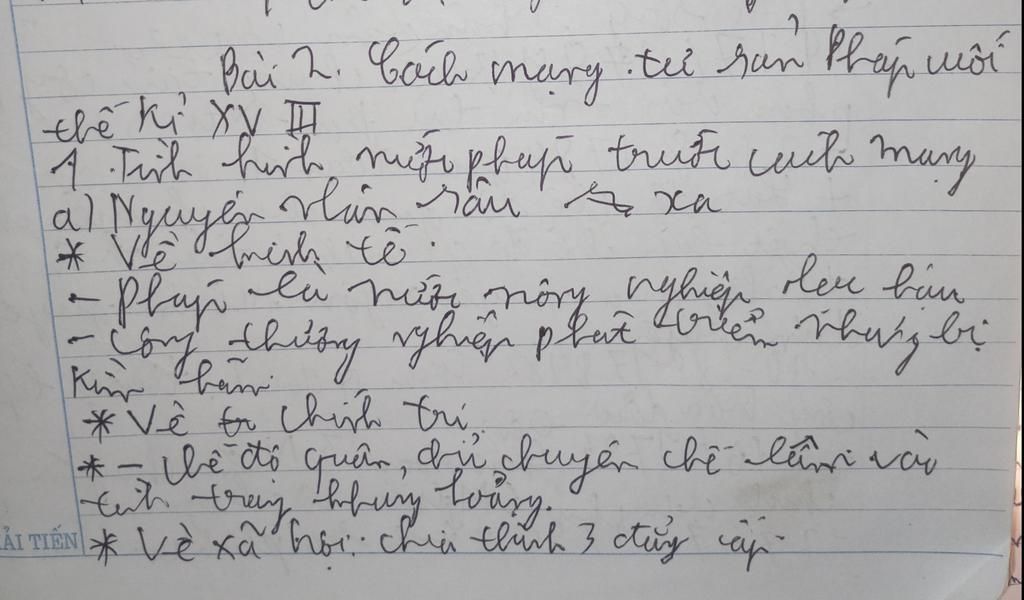 Bài 2. Cách mạng tư sản Pháp cuối
thế kỉ XVIII
1. Tình hình nước pháp trước cách mạng
a) Nguyên nhân sâu xa
* Về kinh tế
- Pháp là nước nông nghiệp lạc hậu
- Công thương nghiệp phát triển nhưng bị
Kìm hãm
* Về chính trị
* - Chế độ quân chủ chuyên chế lâm vào
tình trạng khủng hoảng.
ẢI TIẾN
* Về xã hội: chia thành 3 đẳng cấp